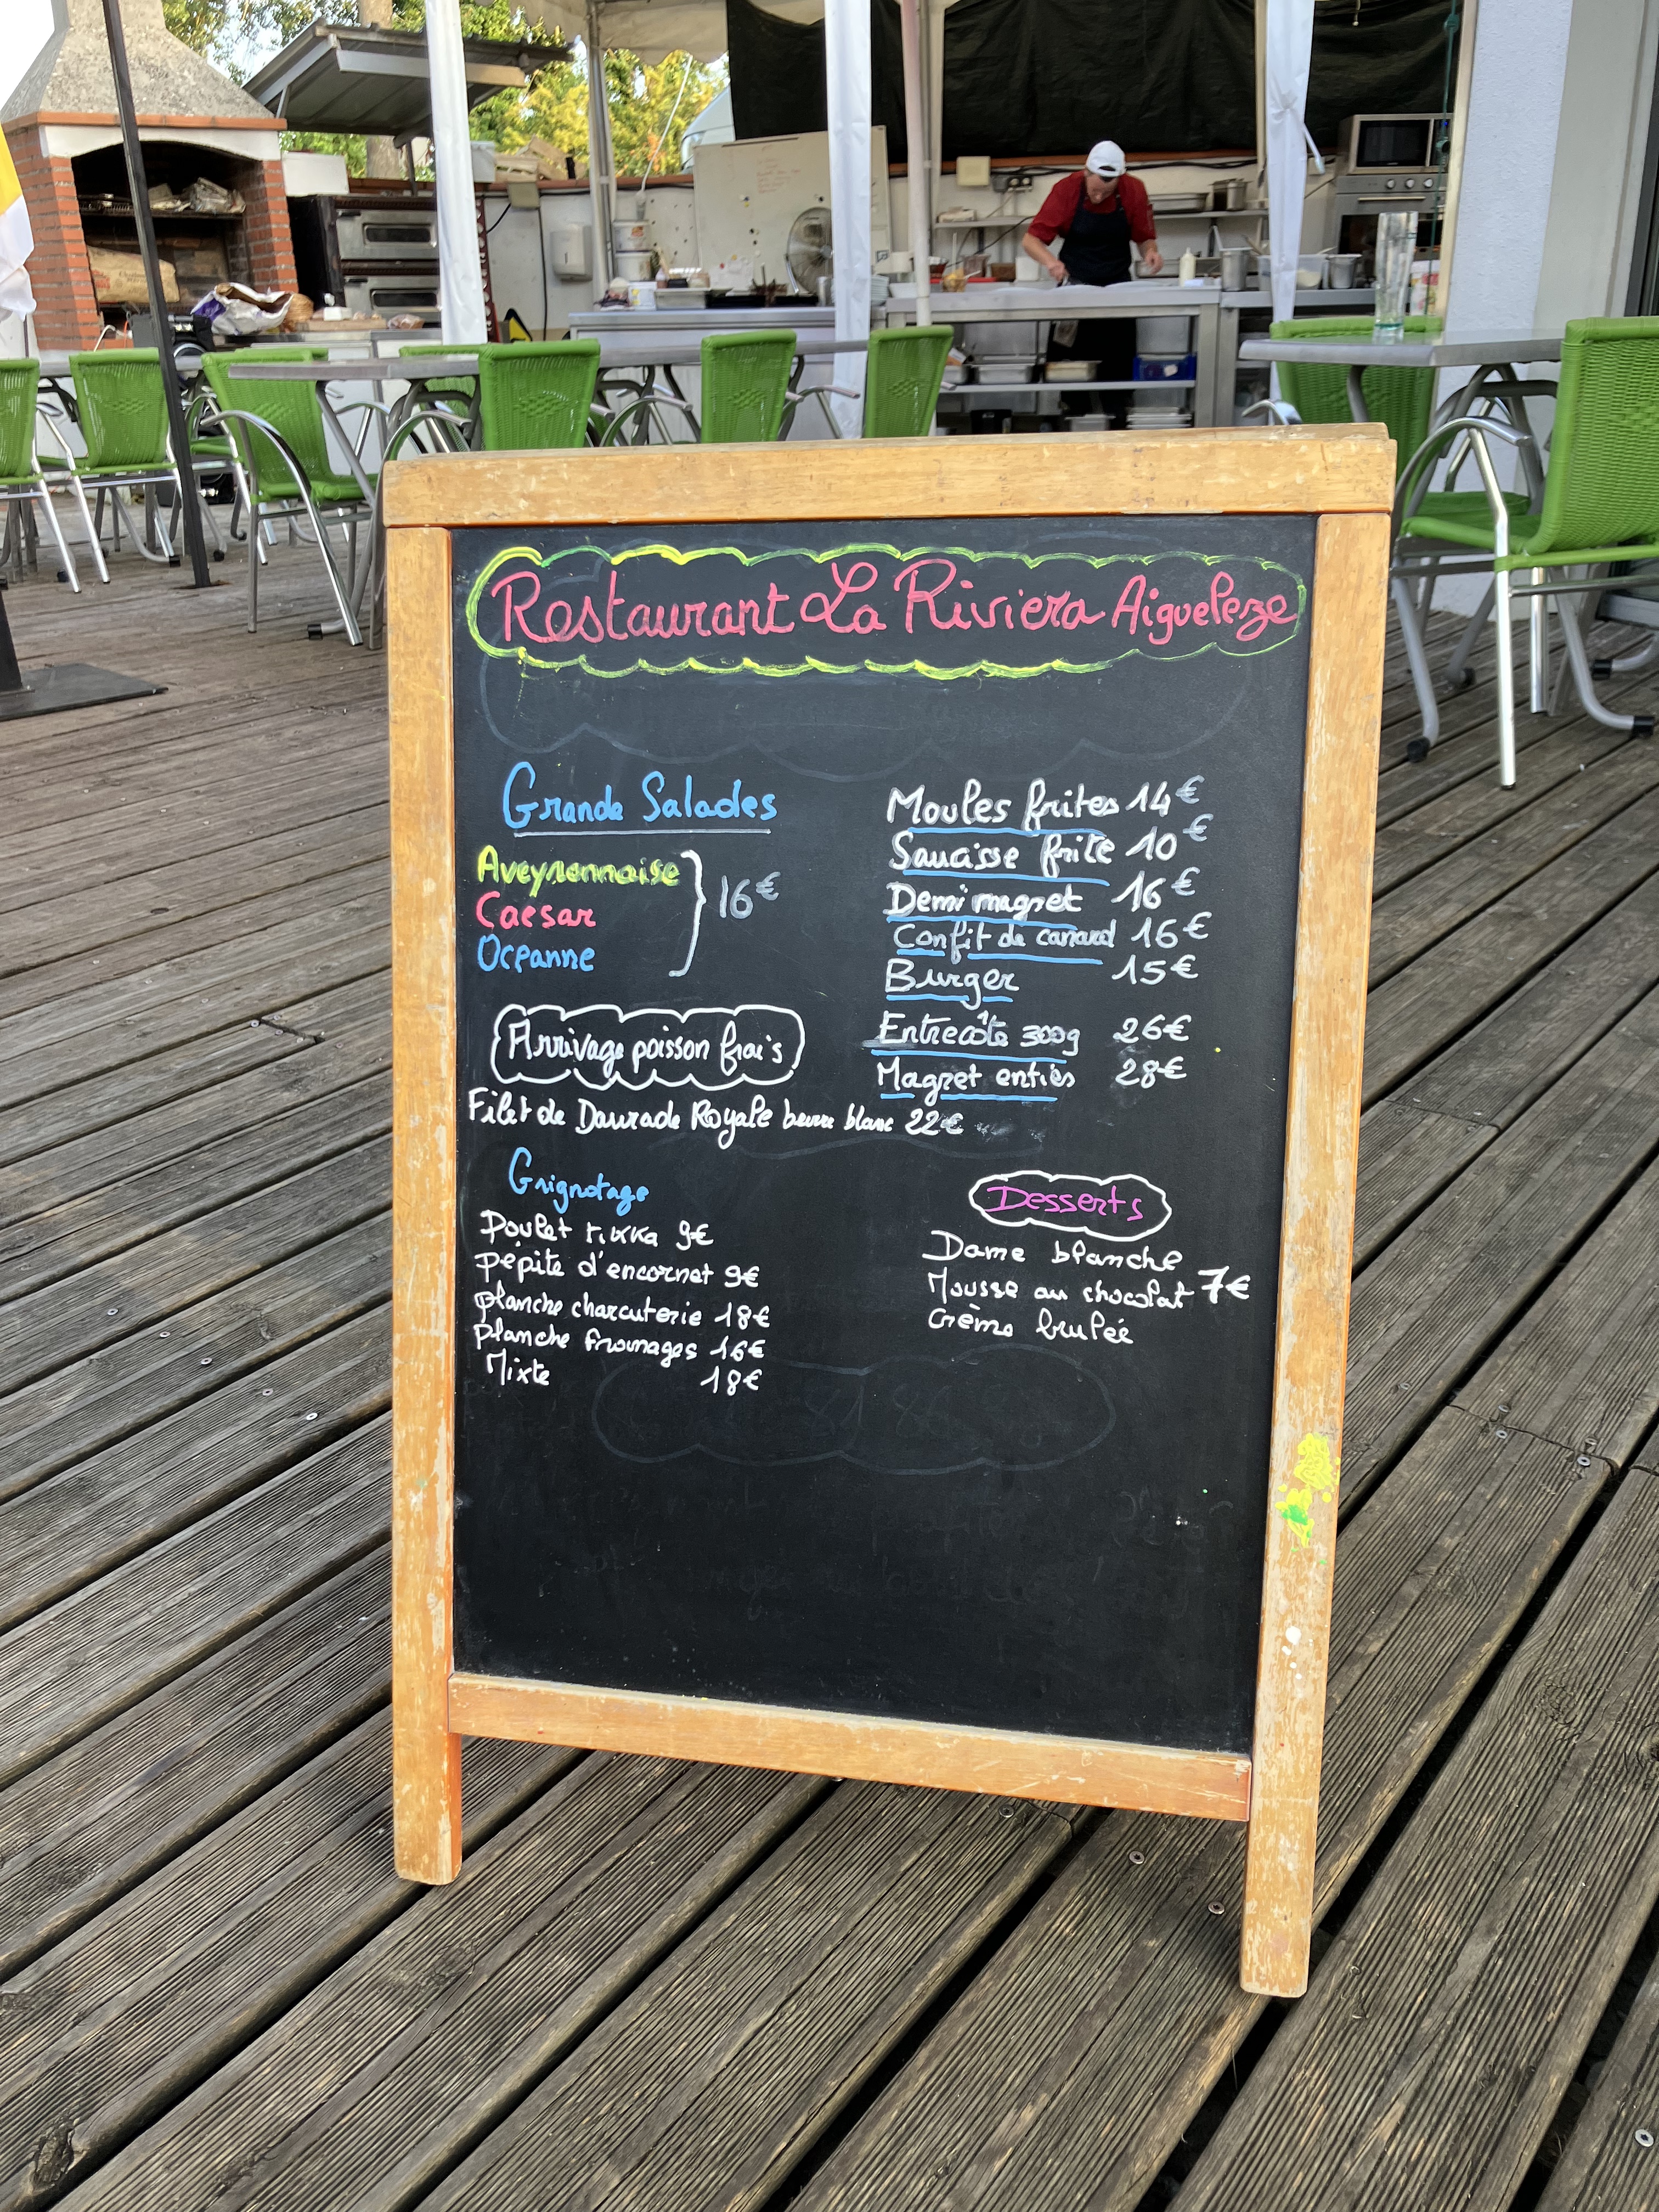 Restaurant La Riviera Aigueleze
Grande Salades
Aveyronnaise
Caesar
Oceanne
16€
Moules frites 14€
Saucisse frite 10€
Demi magret 16€
Confit de canard 16€
Burger 15€
Entrecôte 300g 26€
Magret entier 28€
Arrivage poisson frais
Filet de Daurade Royale beurre blanc 22€
Grignotage
Poulet tikka 9€
pépite d'encornet 9€
planche charcuterie 18€
planche fromages 16€
Mixte 18€
Desserts
Dame blanche
Mousse au chocolat 7€
Crème brulée